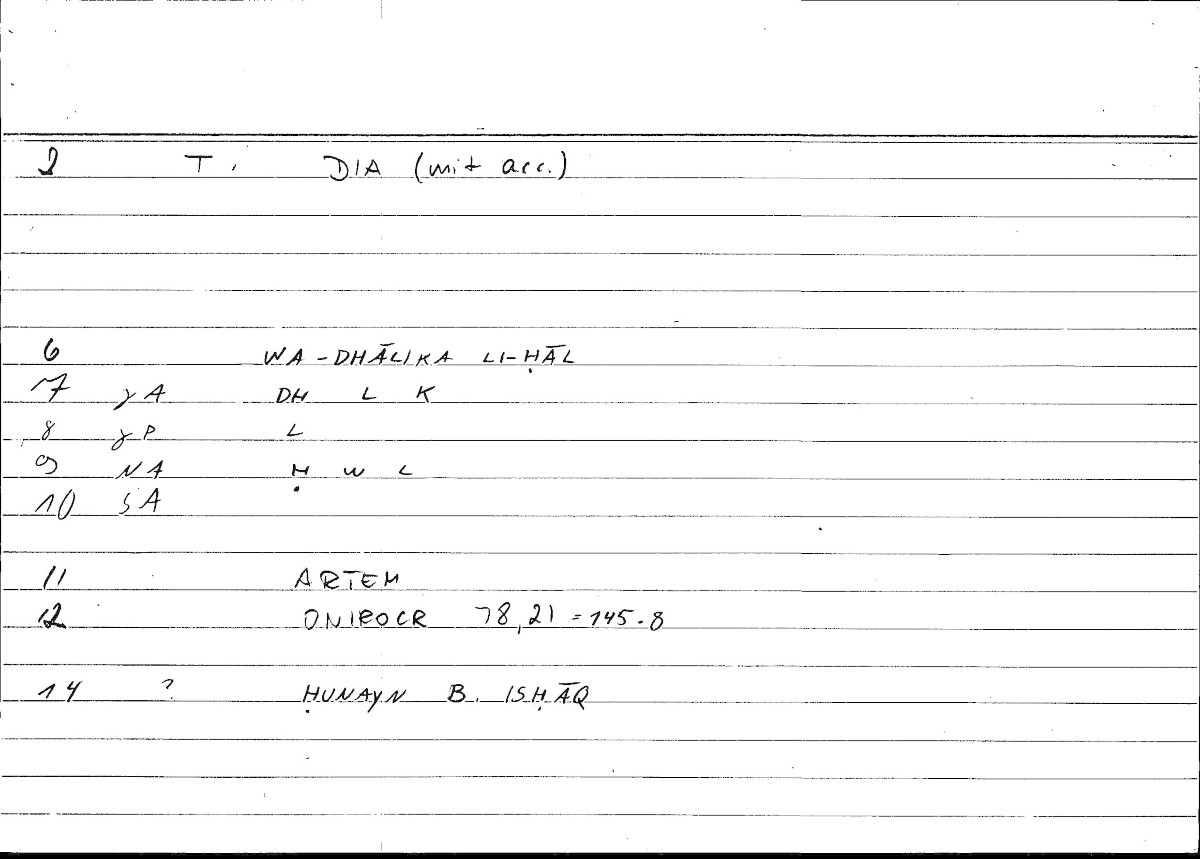 2 T. DIA (mit acc.)
6 WA-DHĀLIKA LI-ḤĀL
7 γA DH L K
8 γP L
9 NA Ḥ W L
10 SA
11 ARTEM
12 ONIROCR 78,21 = 145.8
14 ? ḤUNAYN B. ISḤĀQ